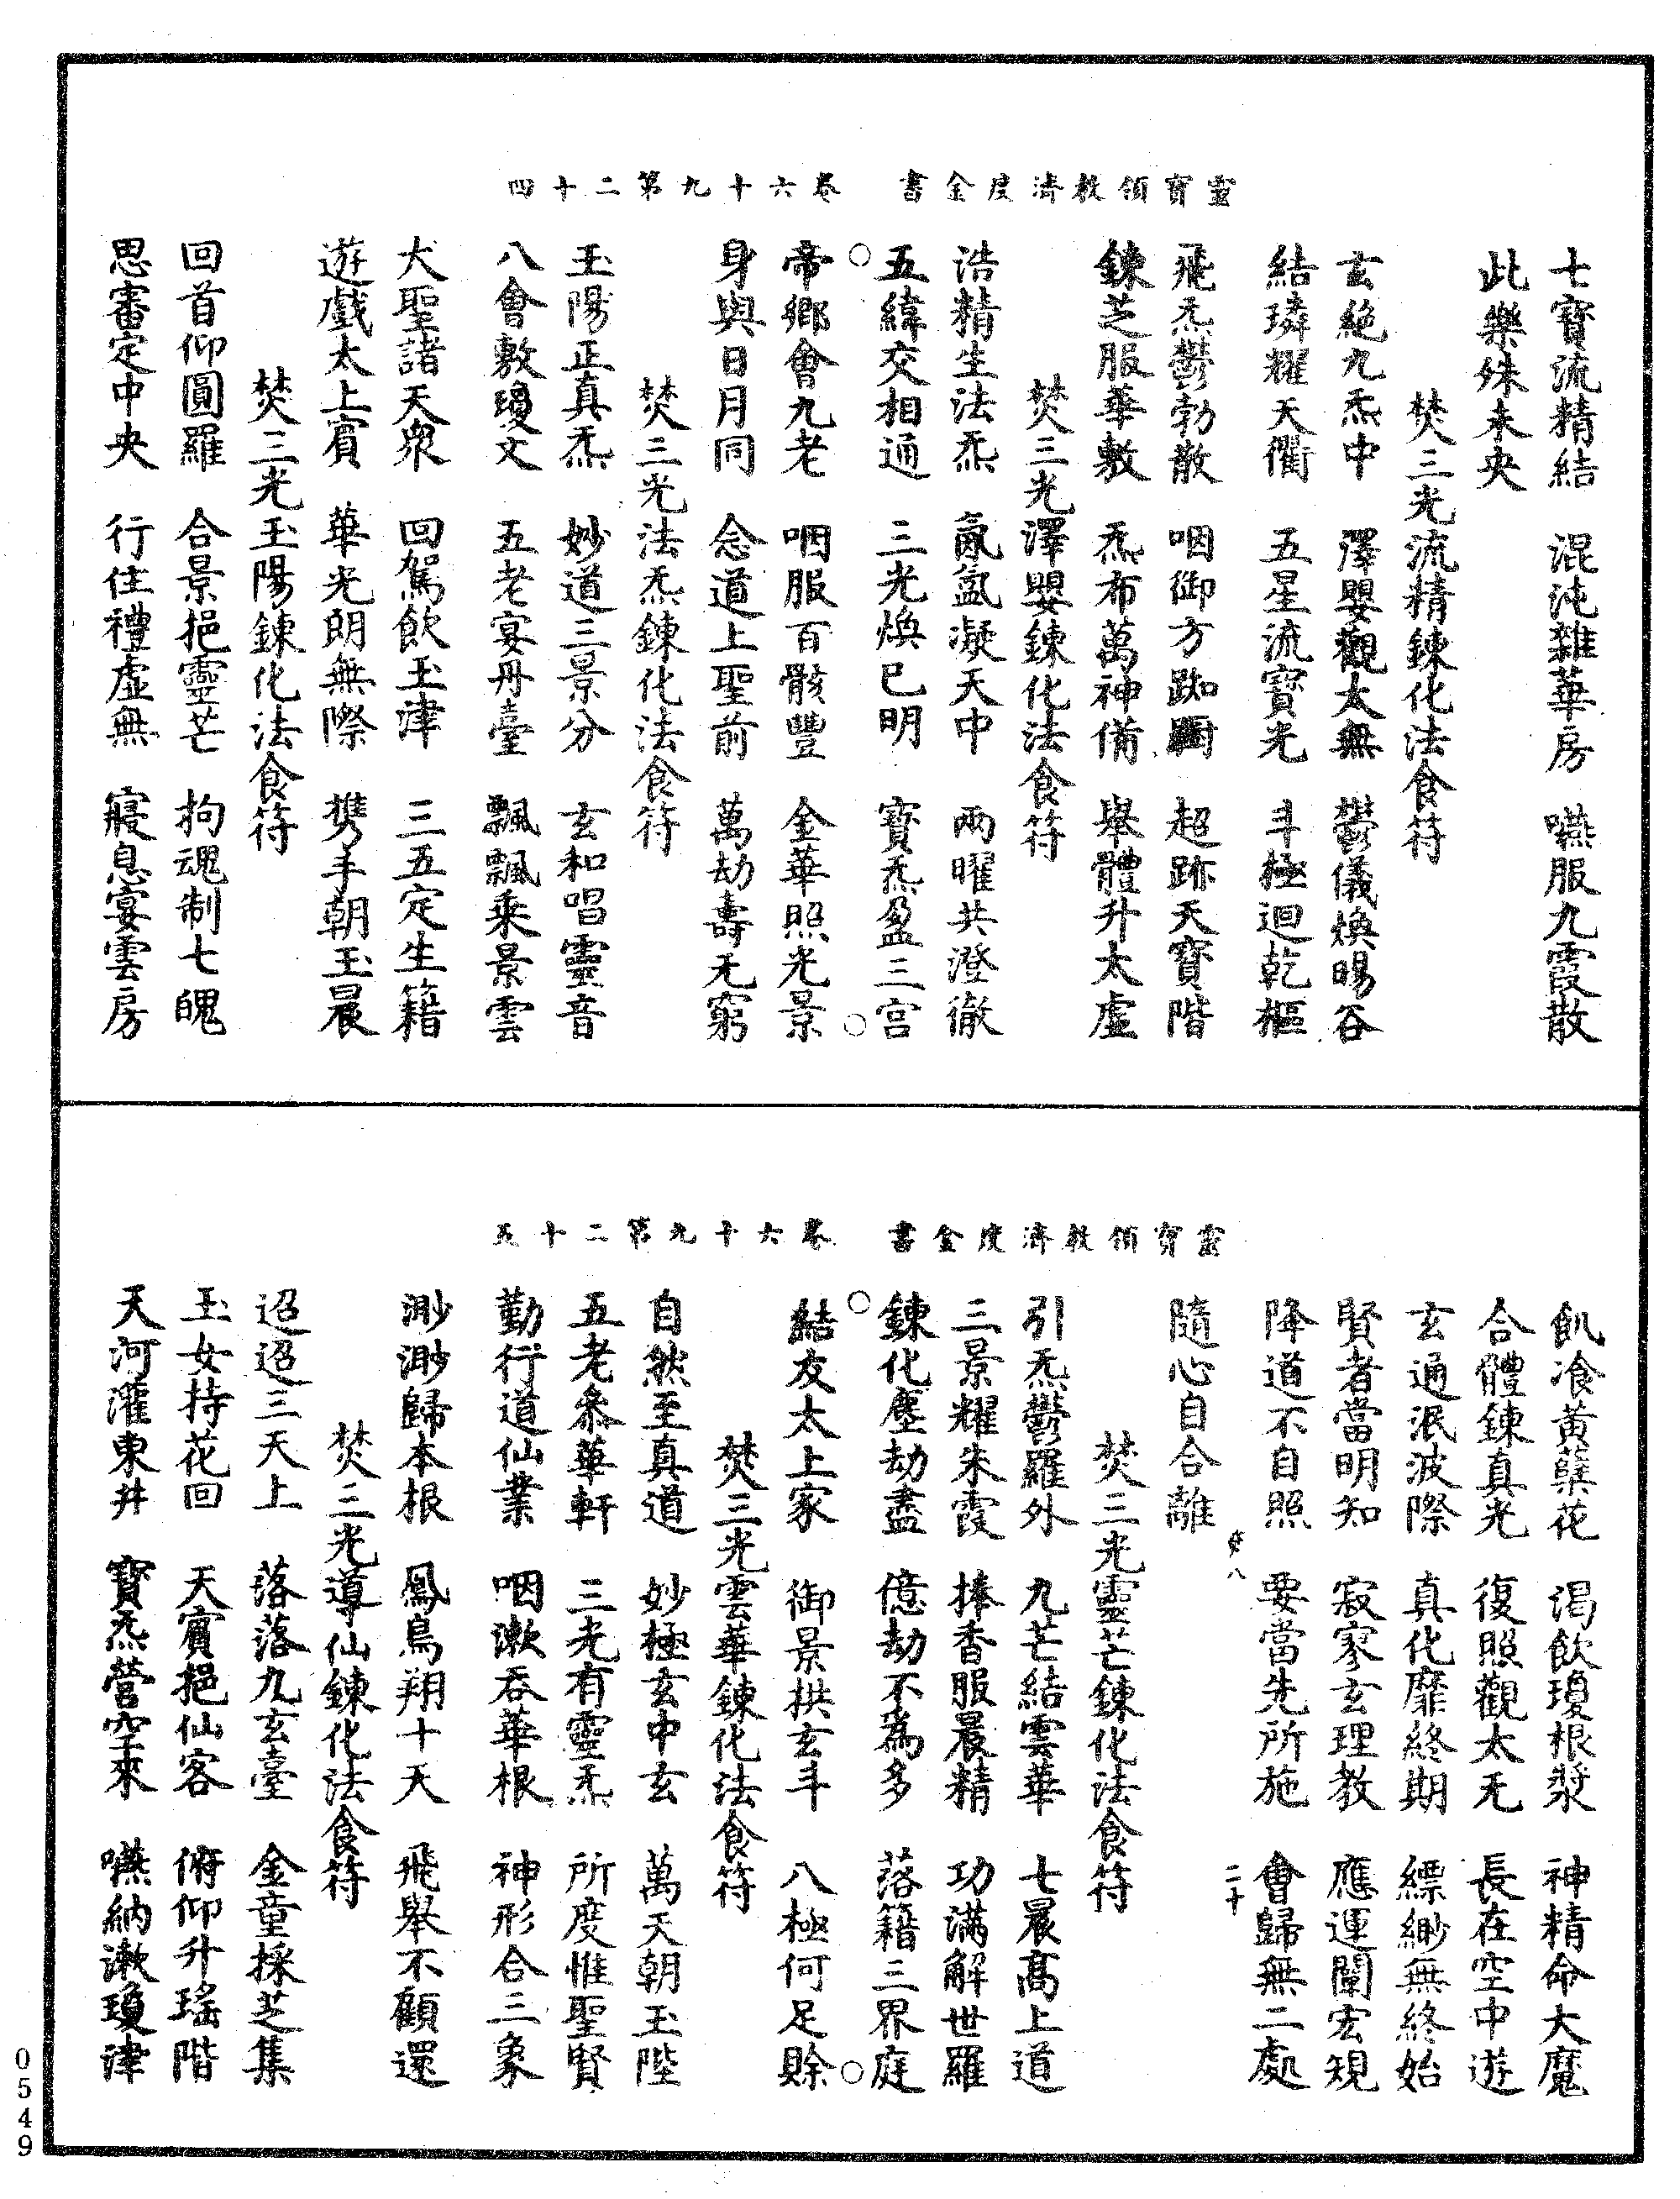 靈寶領教濟度金書　卷六十九第二十四
七寶流精結　混沌雜華房　嚥服九霞散
此樂殊未央
焚三光流精鍊化法食符
玄絶九炁中　澤嬰觀太無　鬱儀煥暘谷
結璘耀天衢　五星流寶光　斗極迴乾樞
飛炁鬱勃散　咽御方踟躕　超跡天寶階
鍊芝服華敷　炁布萬神備　舉體升太虛
焚三光澤嬰鍊化法食符
浩精生法炁　氤氲凝天中　兩曜共澄徹
五緯交相通　三光煥已明　寶炁盈三宮
帝鄉會九老　咽服百骸豐　金華照光景
身與日月同　念道上聖前　萬劫壽无窮
焚三光法炁鍊化法食符
玉陽正真炁　妙道三景分　玄和唱靈音
八會敷瓊文　五老宴丹臺　飄飄乘景雲
大聖諸天衆　回駕飲玉津　三五定生籍
遊戲太上賓　華光朗無際　携手朝玉晨
焚三光玉陽鍊化法食符
回首仰圓羅　合景挹靈芒　拘魂制七魄
思審定中央　行住禮虛無　寢息宴雲房
靈寶領教濟度金書　卷六十九第二十五
飢飡黃蘂花　渴飲瓊根漿　神精命大魔
合體鍊真光　復照觀太无　長在空中遊
玄通泯波際　真化靡終期　縹緲無終始
賢者當明知　寂寥玄理教　應運闡宏規
降道不自照　要當先所施　會歸無二處
二十
隨心自合離
焚三光靈芒鍊化法食符
引炁鬱羅外　九芒結雲華　七晨高上道
三景耀朱霞　捧香服晨精　功滿解世羅
鍊化塵劫盡　億劫不爲多　落籍三界庭
結友太上家　御景拱玄斗　八極何足賒
焚三光雲華鍊化法食符
自然至真道　妙極玄中玄　萬天朝玉陛
五老叅華軒　三光有靈炁　所度惟聖賢
勤行道仙業　咽漱吞華根　神形合三象
渺渺歸本根　鳳鳥翔十天　飛舉不顧還
焚三光導仙鍊化法食符
迢迢三天上　落落九玄臺　金童採芝集
玉女持花回　天賓挹仙客　俯仰升瑤階
天河灌東井　寶炁營空來　嚥納漱瓊津
0549